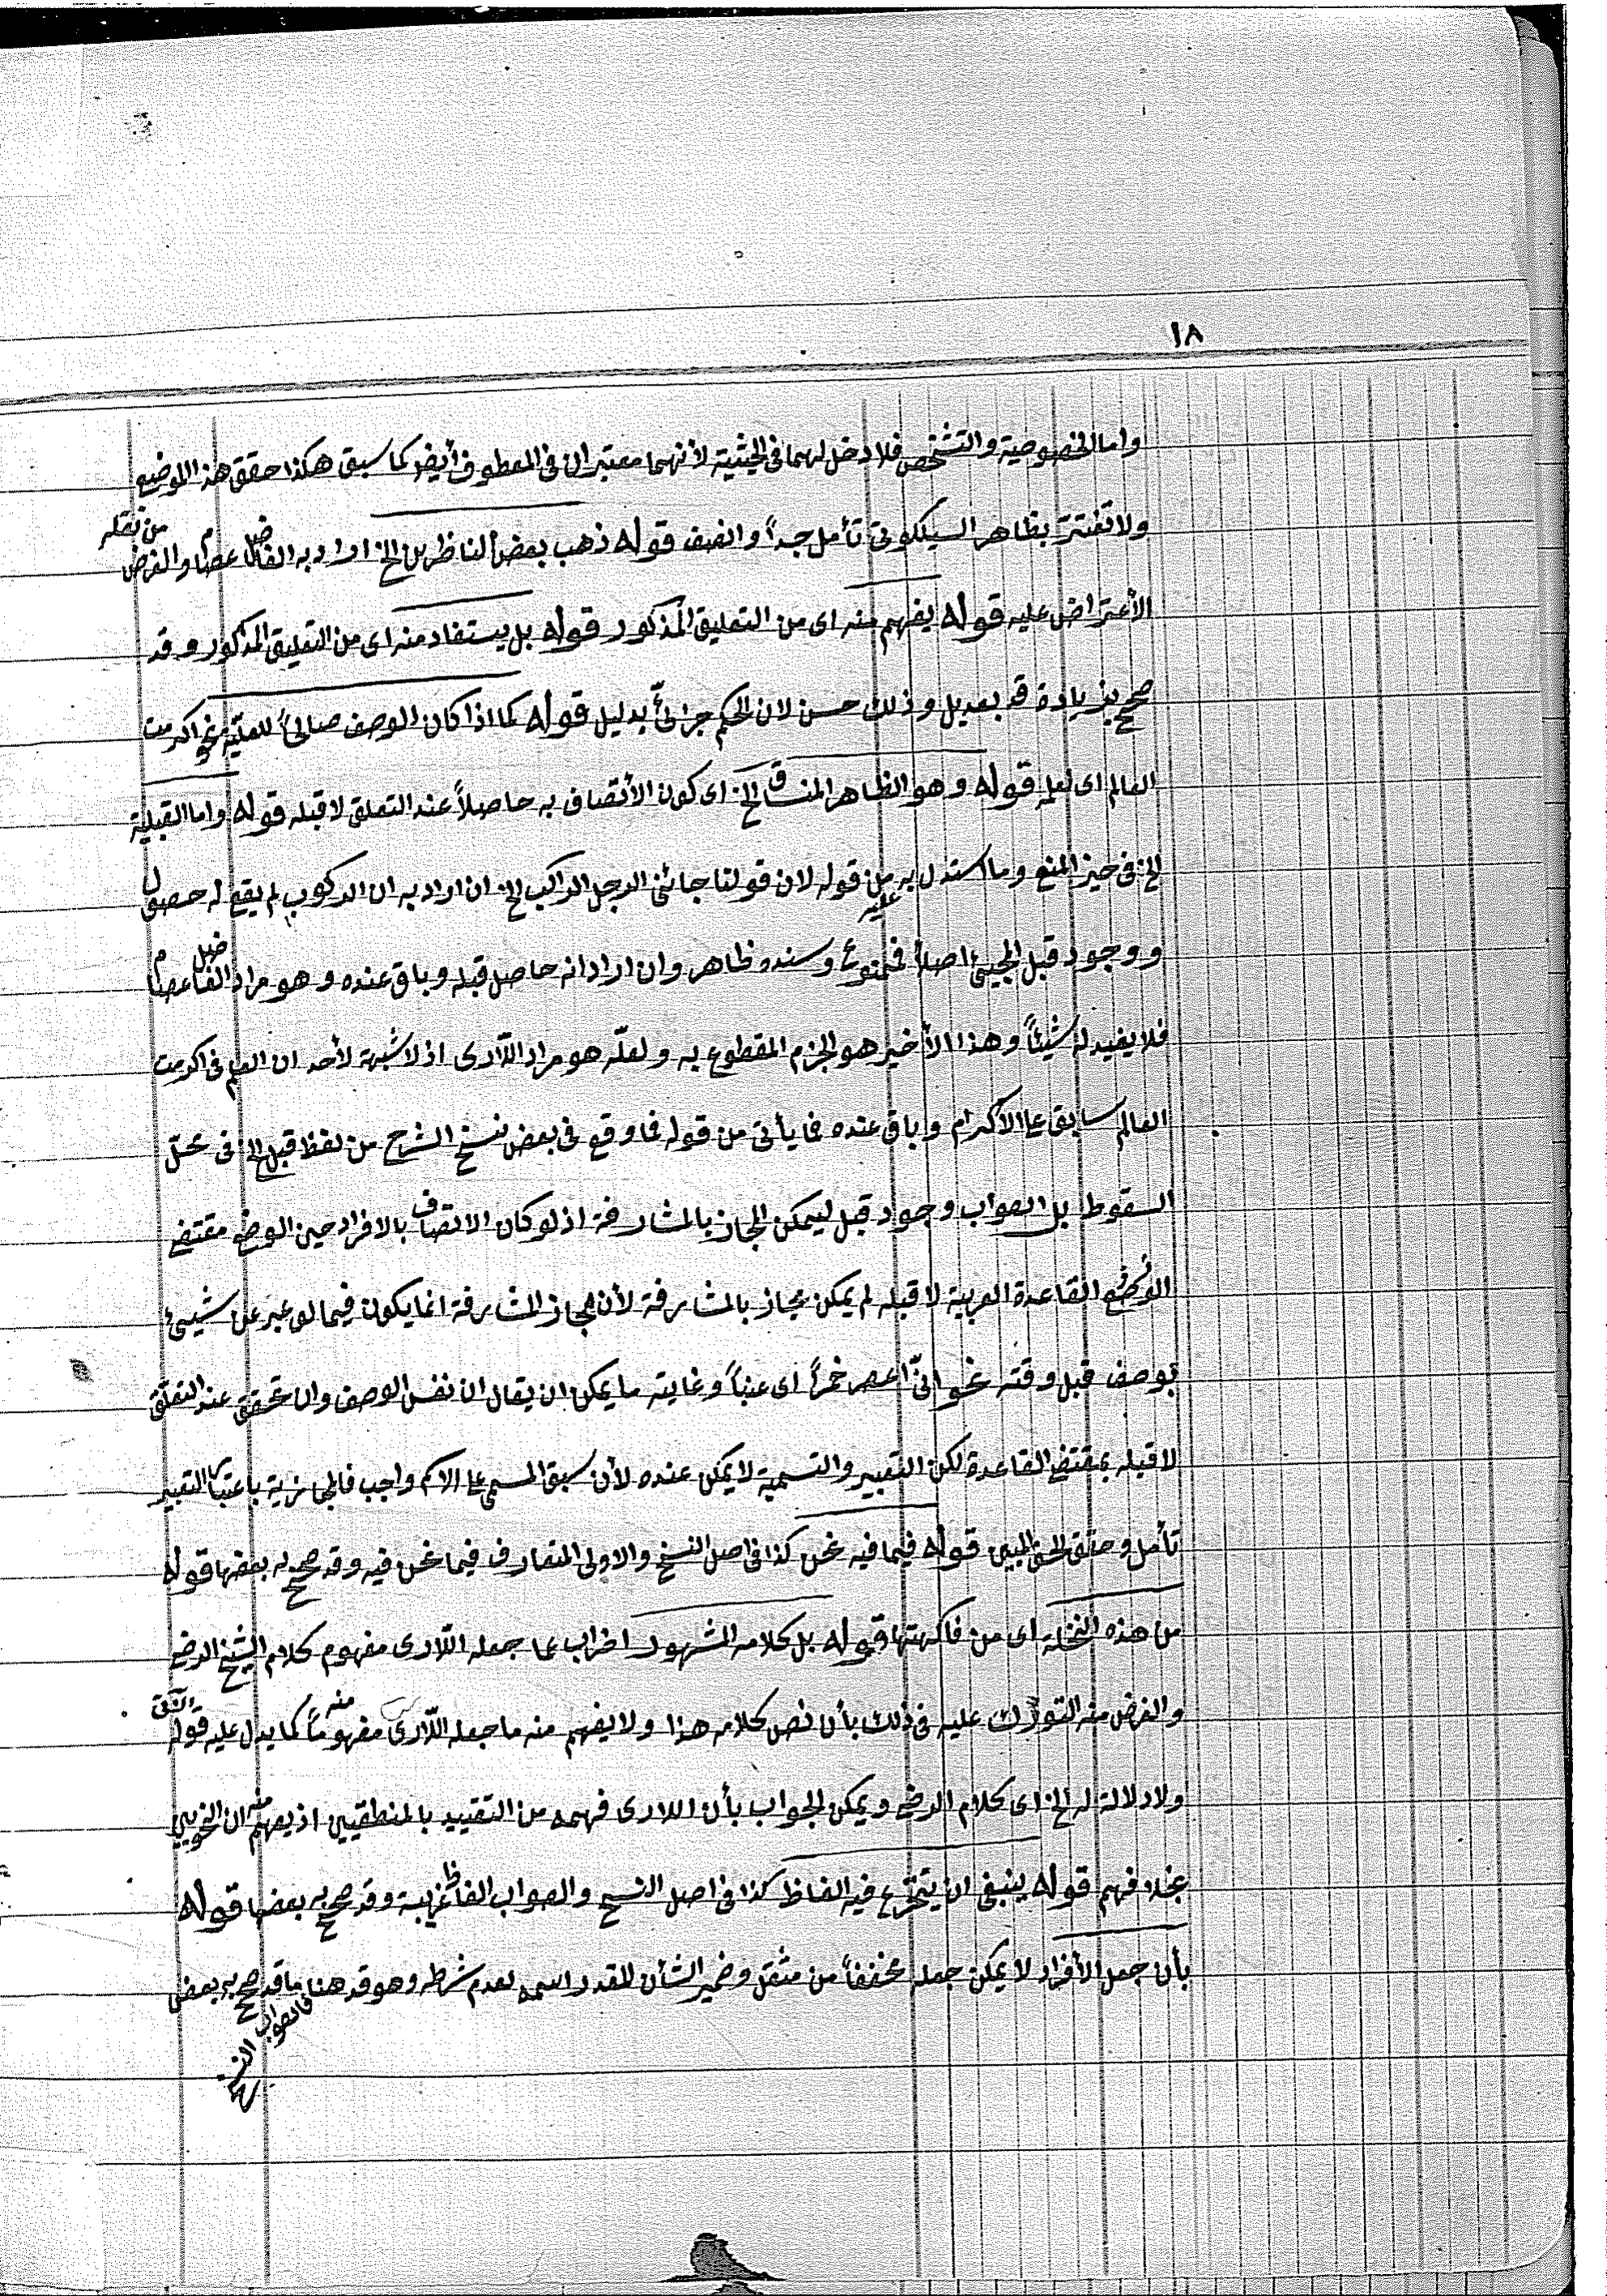 ١٨
واما الخصوصية والتشخص فلا دخل لهما فى الحيثية لأنهما معتبران فى المعطوف أيضا كما سبق هكذا حقق هذا الموضع
ولا تغتر بظاهر السيلكوتى تأمل جداً وانصف قوله ذهب بعض الناظرين الخ اراد به الفاضل عصام والغرض من نقله
الأعتراض عليه قوله يفهم منه اى من التعليق المذكور قوله بل يستفاد منه اى من التعليق المذكور وقد
صحح بزيادة قد بعد بل وذلك حسن لان الحكم جزائىّ بدليل قوله كما اذا كان الوصف صالحاً للعلية نحو اكرمت
العالم اى لعلمه قوله وهو الظاهر المنساق الخ اى كون الأتصاف به حاصلاً عند التعلق لا قبله قوله واما القبلية
الخ فى حيز المنع وما استدل به عليه من قوله لان قولنا جائنى الرجل الراكب الخ ان اراد به ان الركوب لم يقع له حصول
ووجود قبل المجيئ اصلاً فممنوع وسنده ظاهر وان اراد انه حاصل قبله وباق عنده وهو مراد الفاضل عصام
فلا يفيد له شيئاً وهذا الأخير هو الجزم المقطوع به ولعلّه هو مراد اللّارى اذ لا شبهة لأحد ان العلم فى اكرمت
العالم سابق على الاكرام وباق عنده فما يأتى من قوله فما وقع فى بعض نسخ الشرح من لفظ قبل الخ فى محلّ
السقوط بل الصواب وجود قبل ليمكن المجاز بالمشارفة اذ لو كان الاتصاف بالافراد حين الوضع مقتضى
الوضع القاعدة العربية لا قبله لم يمكن مجاز بالمشارفة لأن مجاز المشارفة انما يكون فيما لو عبر عن شيئ
بوصف قبل وقته نحو انىّ اعصر خمراً اى عنباً وغايته ما يمكن ان يقال ان نفس الوصف وان تحقق عند التعلّق
لا قبله بمقتضى القاعدة لكن التعبير والتسمية لا يمكن عنده لأن سبق المسمى على الاسم واجب فالمجازية باعتبار التعبير
تأمل وحقق الحق المبين قوله فيما فيه نحن كذا فى اصل النسخ والاولى المتعارف فيما نحن فيه وقد صحح به بعضها قوله
من هذه النخلة اى من فاكهتها قوله بل كلامه المشهور اضراب عما جعله اللّارى مفهوم كلام الشيخ الرضى
والغرض منه التورّك عليه فى ذلك بأن نص كلامه هذا ولا يفهم منه ما جعله اللّارى مفهوماً منه كما يدل عليه قوله الآتى
ولا دلالة له الخ اى كلام الرضى ويمكن الجواب بأن اللارى فهمه من التقييد بالمنطقيين اذ يفهم منه ان النحويين
بخلافهم قوله ينبغى ان يتخرّع فيه الفاظ كذا فى اصل النسخ والصواب الفاظ غريبة وقد صحح به بعضها قوله
بأن جعل الأفراد لا يمكن جعله مخففاً من مثقل وضمير الشأن المقدر اسمه لعدم شرطه وهو قد هنا ما قد صحح به بعض
النسخ فالصواب